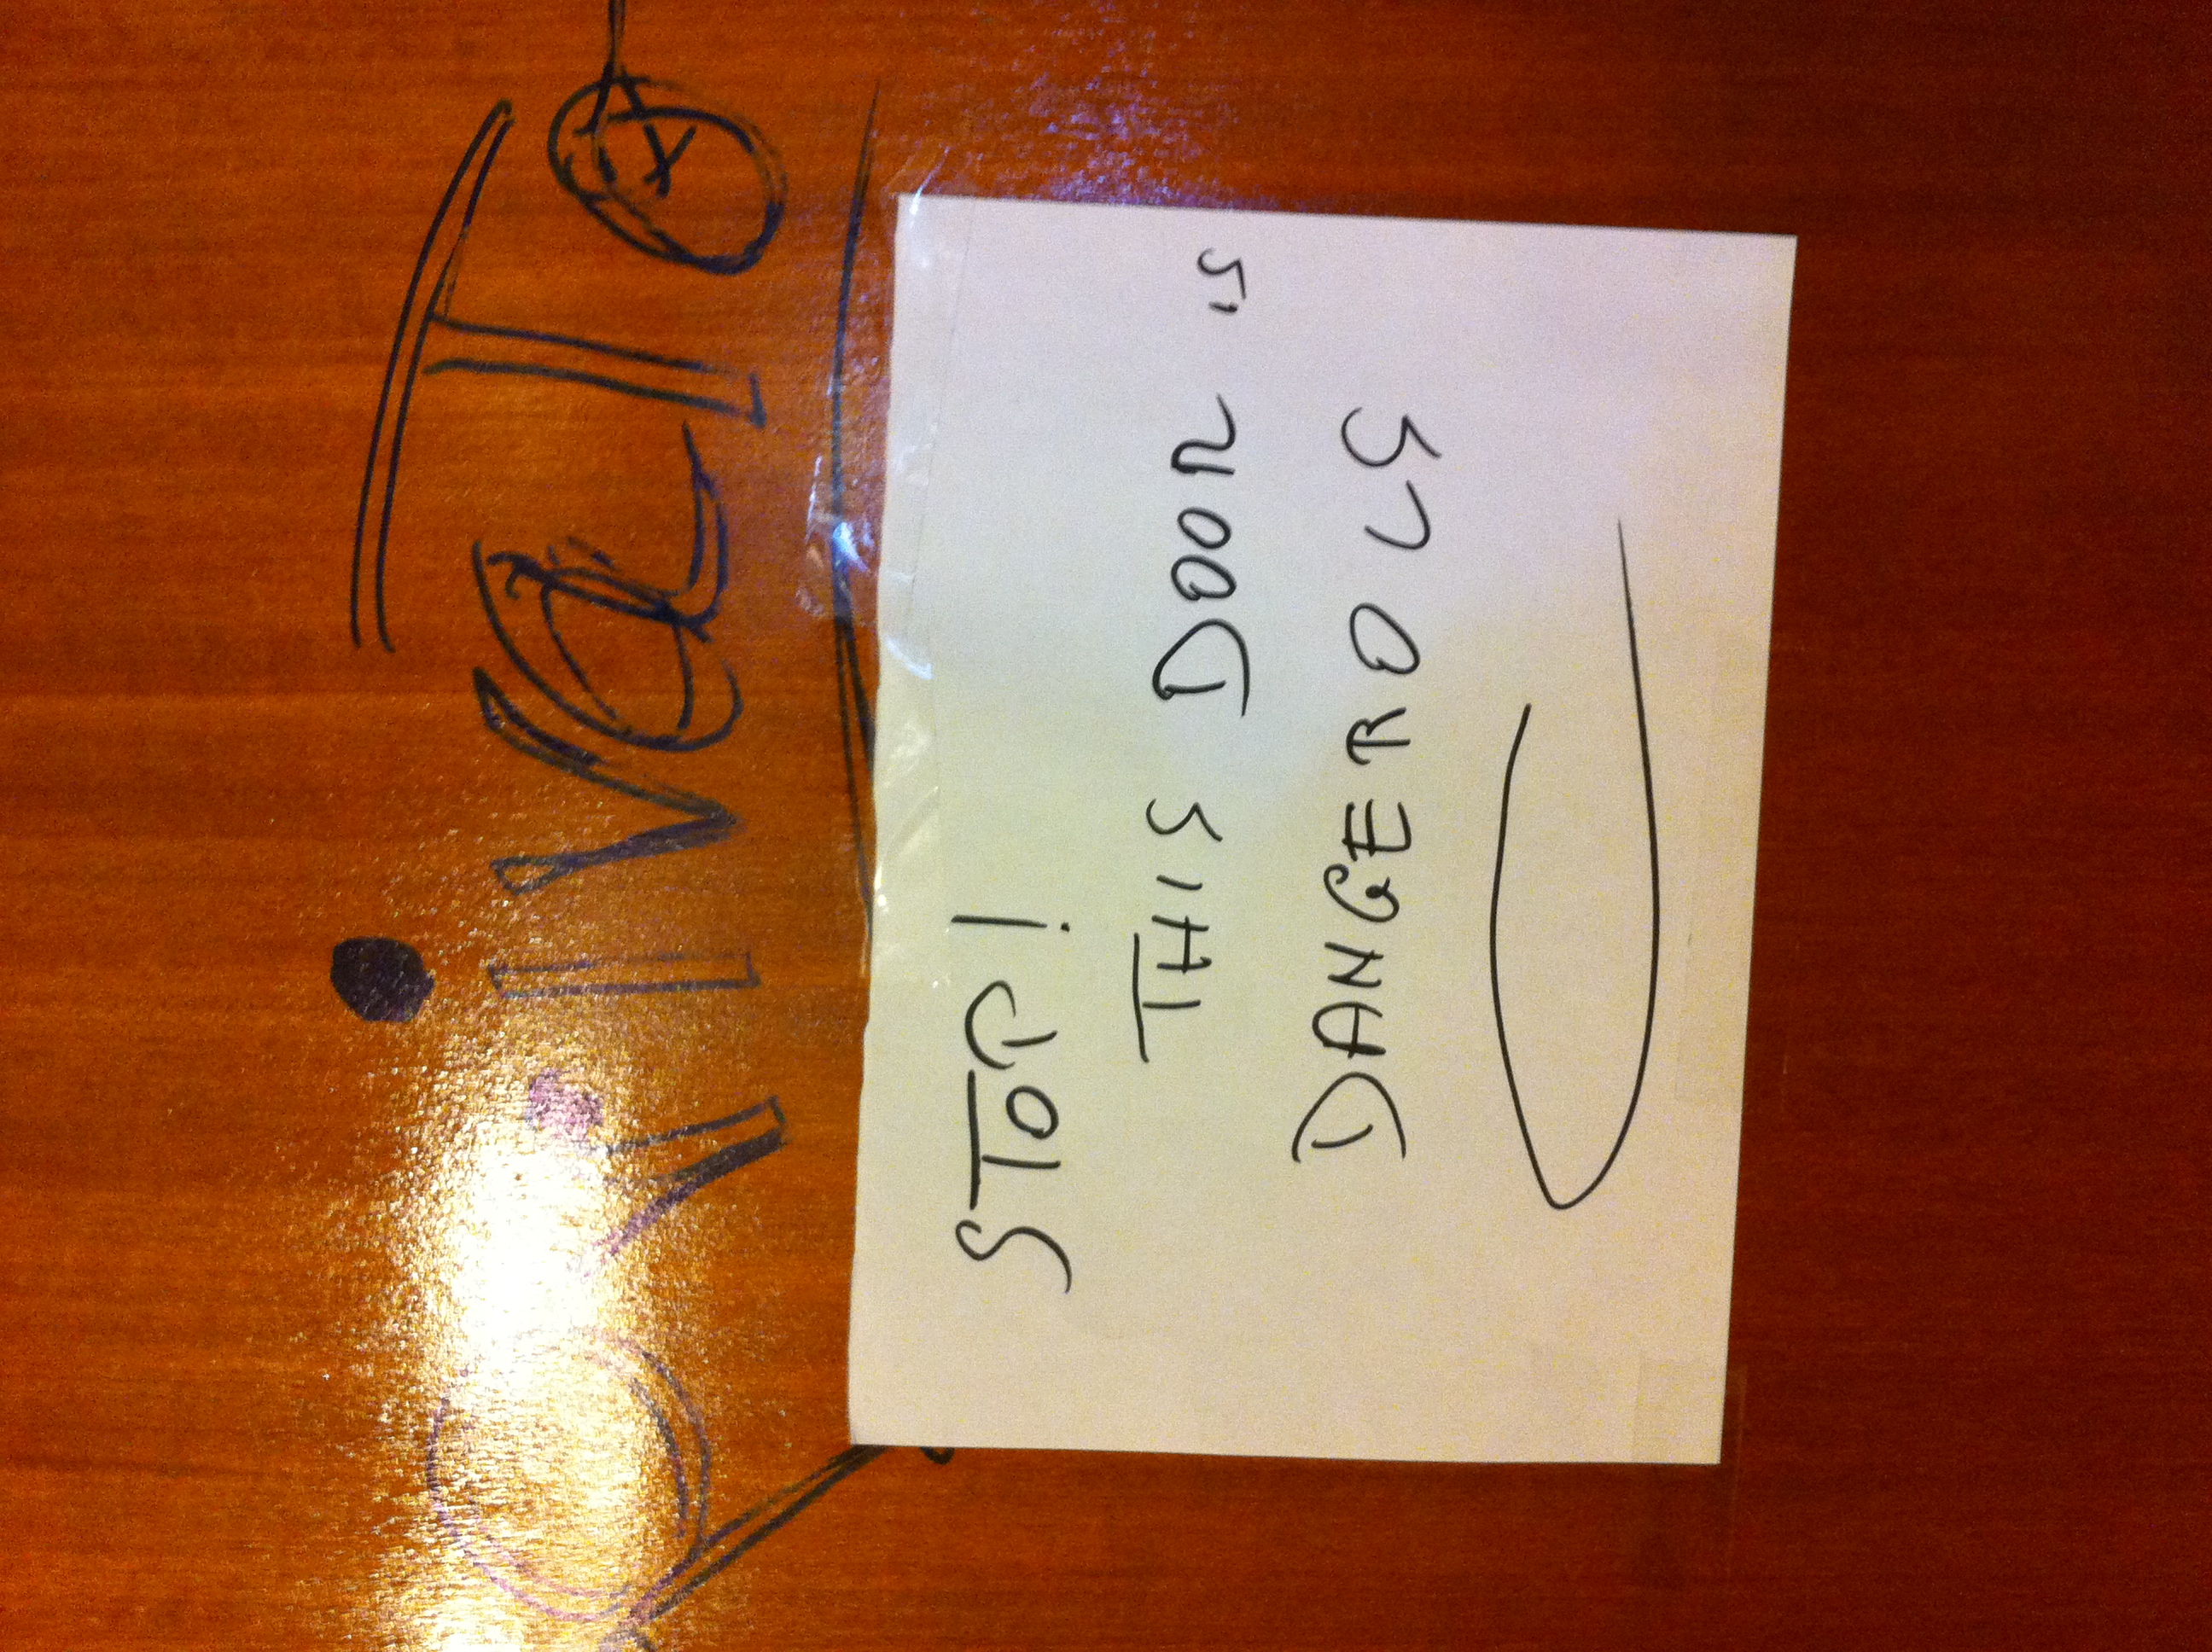 PrivaTo
STOP!
THIS DOOR is
DANGEROUS